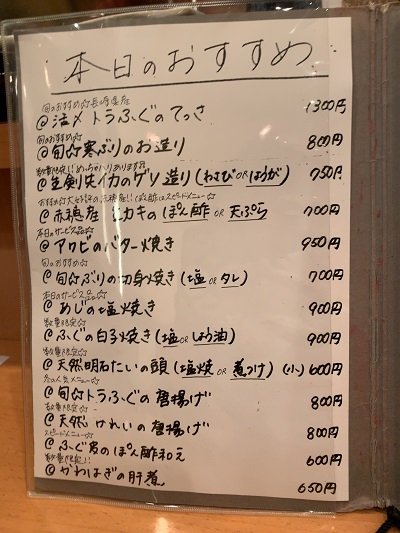 本日のおすすめ
旬のおすすめ☆長崎県産
@ 活〆トラふぐのてっさ 1300円
旬のおすすめ☆
@ 旬☆寒ぶりのお造り 800円
数量限定!!めっちゃハリあります
@ 生剣先イカのゲソ造り(わさび OR しょうが) 750円
おすすめ☆
スピードメニュー☆
@ 赤穂産 カキのぽん酢 OR 天ぷら 700円
本日のサービス品☆
@ アワビのバター焼き 950円
旬のおすすめ☆
@ 旬☆ぶりの切身焼き(塩 OR タレ) 700円
本日のサービス品☆
@ あじの塩焼き 900円
数量限定☆
@ ふぐの白子焼き(塩 OR しょう油) 900円
数量限定☆
@ 天然明石たいの頭(塩焼 OR 煮つけ)(小) 600円
人気メニュー☆
@ 旬☆トラふぐの唐揚げ 800円
数量限定☆
@ 天然 かれいの唐揚げ 800円
スピードメニュー☆
@ ふぐ皮のぽん酢和え 600円
数量限定!!
@ かわはぎの肝煮 650円